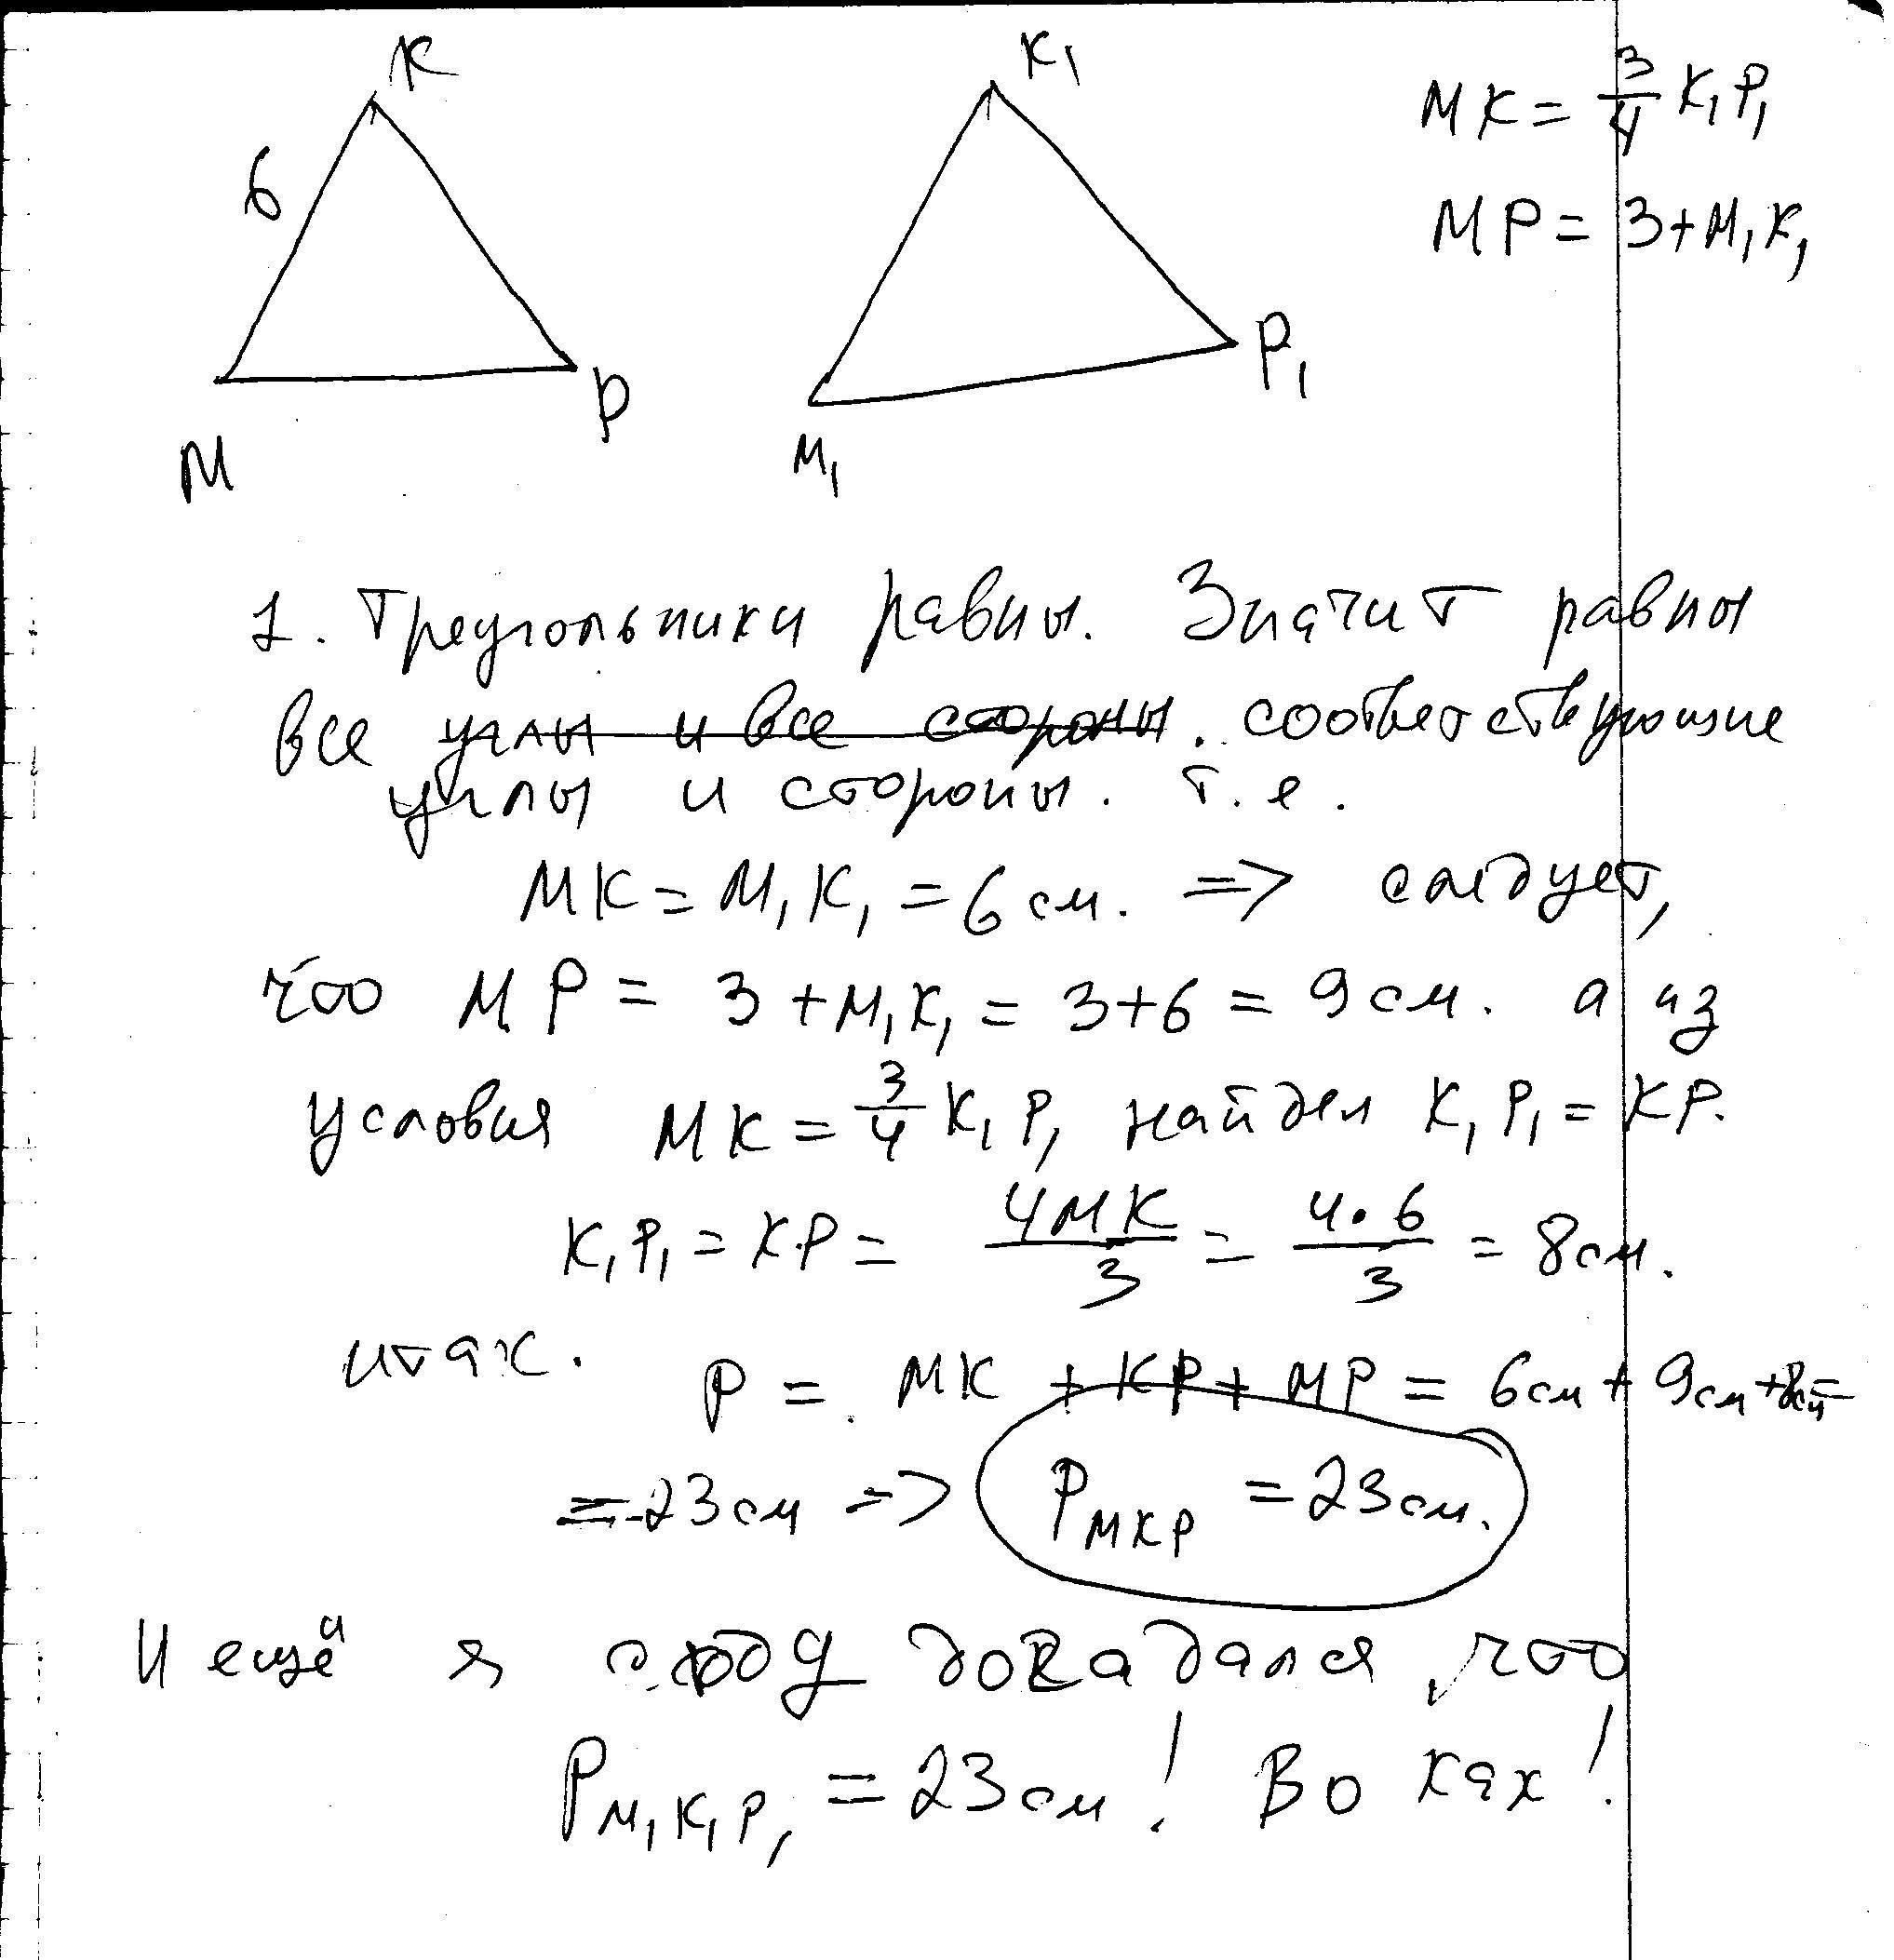 K
K₁
MK = 3/4 K₁P₁
6
MP = 3 + M₁K₁
P
P₁
M
M₁
1. Треугольники равны. Значит равны
все углы и все стороны. соответствующие
углы и стороны. т.е.
MK = M₁K₁ = 6 см. => следует,
что MP = 3 + M₁K₁ = 3 + 6 = 9 см. а из
условия MK = 3/4 K₁P₁ найдем K₁P₁ = KP.
K₁P₁ = KP = 4MK/3 = 4·6/3 = 8 см.
итак. P = MK + KP + MP = 6 см + 9 см + 8 см =
= 23 см => P MKP = 23 см.
И ещё я догадался, что
P M₁K₁P₁ = 23 см! Во как!